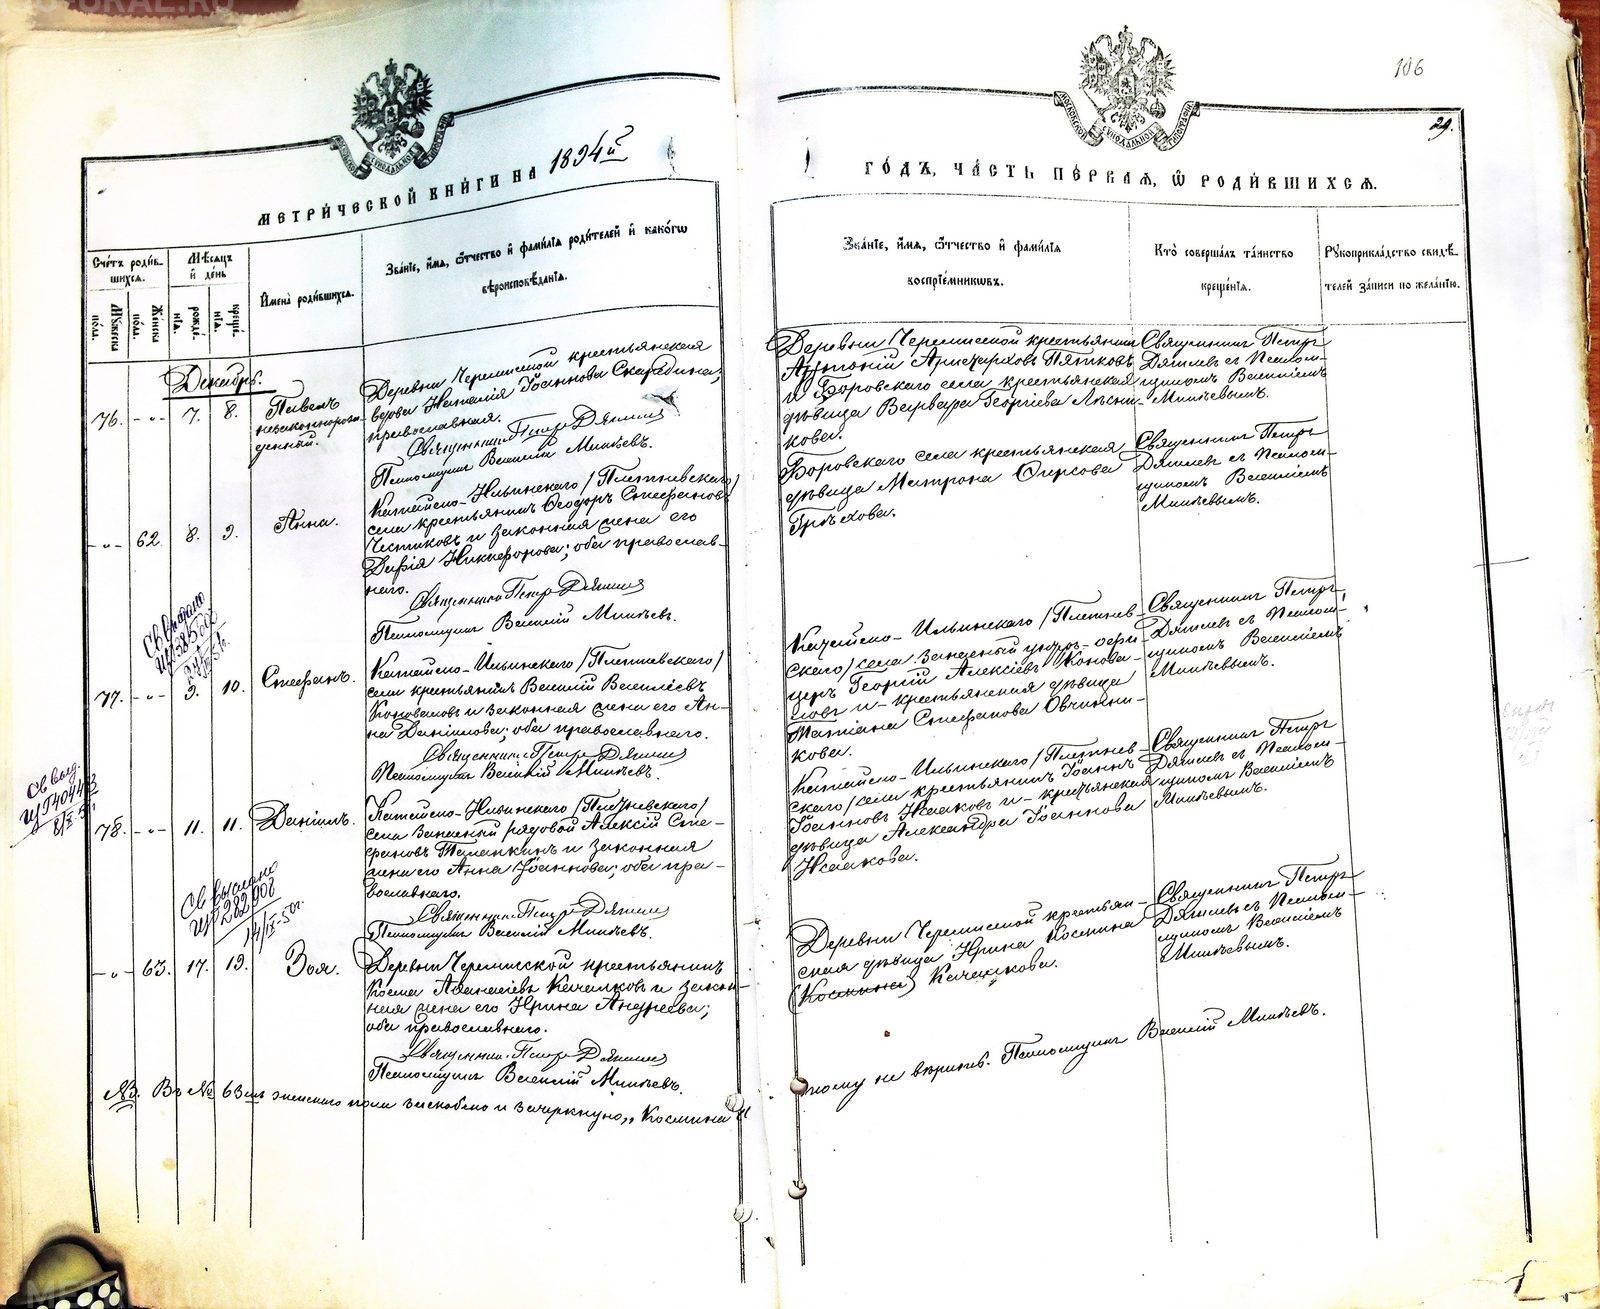 106
29.
МЕТРИЧЕСКОЙ КНИГИ НА 1894й
ГОДЪ, ЧАСТЬ ПЕРВАЯ, Ѡ РОДИВШИХСЯ.
Счетъ родившихся.
Мужеска пола.
Женска пола.
Мѣсяцъ и день
рожденія.
крещенія.
Имена родившихся.
Званіе, имя, отчество и фамилія родителей и какогѡ
вѣроисповѣданія.
Званіе, имя, отчество и фамилія
воспріемниковъ.
Кто совершалъ таинство
крещенія.
Рукоприкладство свидѣ-
телей записи по желанію.
Декабрь.
76. - „ - 7. 8.
Павелъ
незаконнорож-
денной.
Деревни Черемисской крестьянская
Наталія Іоаннова
православная.
Священникъ Петръ Дягилевъ
Псаломщикъ Василій Минѣевъ.
Деревни Черемисской крестьянинъ
Антоній Аристарховъ Пятковъ
и Боровскаго села крестьянская
дѣвица Варвара Георгіева Лѣсни-
кова.
Священникъ Петръ
Дягилевъ съ Псалом-
щикомъ Василіемъ
Минѣевымъ.
- „ - 62. 8. 9.
Анна.
Катайско-Ильинскаго /Плетневскаго/
села крестьянинъ Ѳеодоръ Стефановъ
и законная жена его
Никифорова; оба православ-
наго.
Священникъ Петръ Дягилевъ
Псаломщикъ Василій Минѣевъ.
Боровскаго села крестьянская
дѣвица Матрона Фирсова
Грѣхова.
Священникъ Петръ
Дягилевъ съ Псалом-
щикомъ Василіемъ
Минѣевымъ.
77. - „ - 9. 10.
Стефанъ.
Катайско-Ильинскаго /Плетневскаго/
села крестьянинъ Василій Василіевъ
Коноваловъ и законная жена его Ан-
на Даніилова; оба православнаго.
Священникъ Петръ Дягилевъ
Псаломщикъ Василій Минѣевъ.
Катайско-Ильинскаго /Плетнев-
скаго/ села Запасный унтръ-офи-
церъ Георгій Алексіевъ Конова-
ловъ и - крестьянская дѣвица
Татіана Стефанова Овчинни-
кова.
Священникъ Петръ
Дягилевъ съ Псалом-
щикомъ Василіемъ
Минѣевымъ.
78. - „ - 11. 11.
Даніилъ.
Катайско-Ильинскаго /Плетневскаго/
села Запасный рядовой Алексій Сте-
фановъ Таланкинъ и законная
жена его Анна Іоаннова; оба пра-
вославнаго.
Священникъ Петръ Дягилевъ
Псаломщикъ Василій Минѣевъ.
Катайско-Ильинскаго /Плетнев-
скаго/ села крестьянинъ Іоаннъ
Іоанновъ Исаковъ и - крестьянская
дѣвица Александра Іоаннова
Исакова.
Священникъ Петръ
Дягилевъ съ Псалом-
щикомъ Василіемъ
Минѣевымъ.
- „ - 63. 17. 19.
Зоя.
Деревни Черемисской крестьянинъ
Косма Аѳанасіевъ Качалковъ и закон-
ная жена его Ирина Андреева;
оба православнаго.
Священникъ Петръ Дягилевъ
Псаломщикъ Василій Минѣевъ.
Деревни Черемисской крестьян-
ская дѣвица Ирина Космина
(Космина) Качалкова.
Священникъ Петръ
Дягилевъ съ Псалом-
щикомъ Василіемъ
Минѣевымъ.
NВ. Въ № 63мъ женскаго пола заскоблено и зачеркнуто „Космина"
тому не вѣрить. Псаломщикъ Василій Минѣевъ.
Св выслано
14/IX-50г.